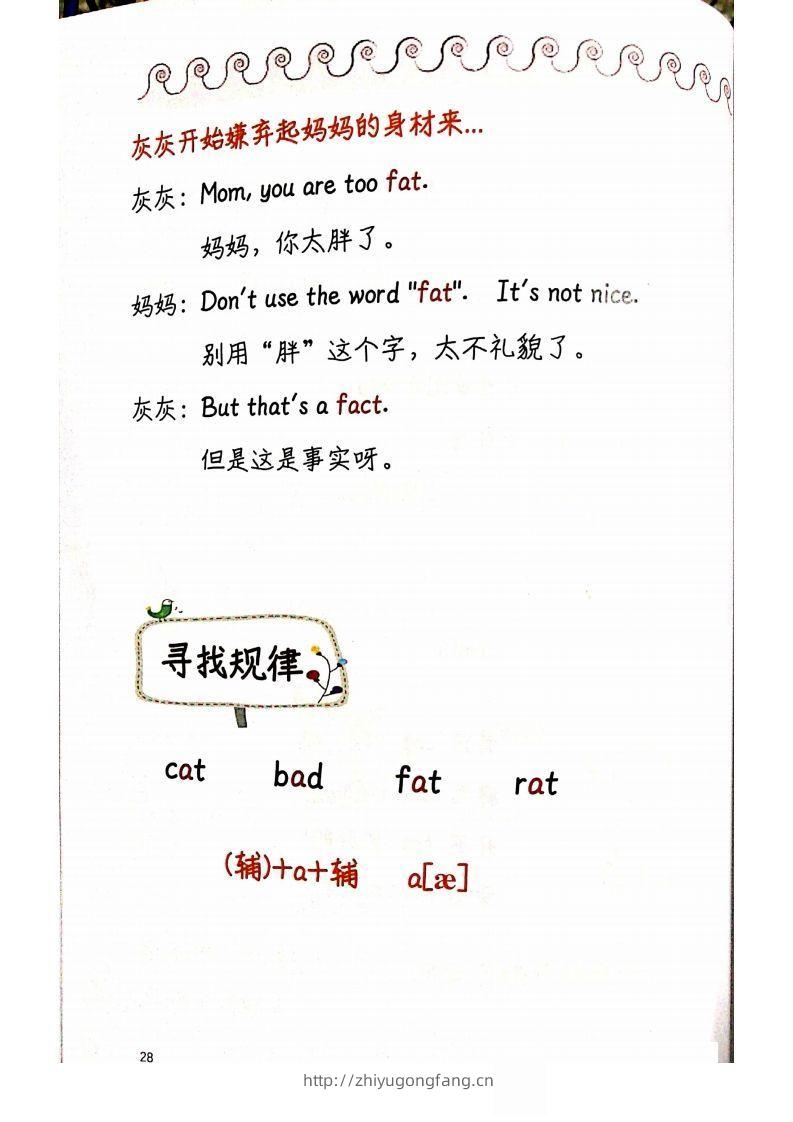 灰灰开始嫌弃起妈妈的身材来...
灰灰：Mom, you are too fat.
妈妈，你太胖了。
妈妈：Don't use the word "fat". It's not nice.
别用“胖”这个字，太不礼貌了。
灰灰：But that's a fact.
但是这是事实呀。
寻找规律
cat bad fat rat
(辅)+a+辅 a[æ]
28
http://zhiyugongfang.cn